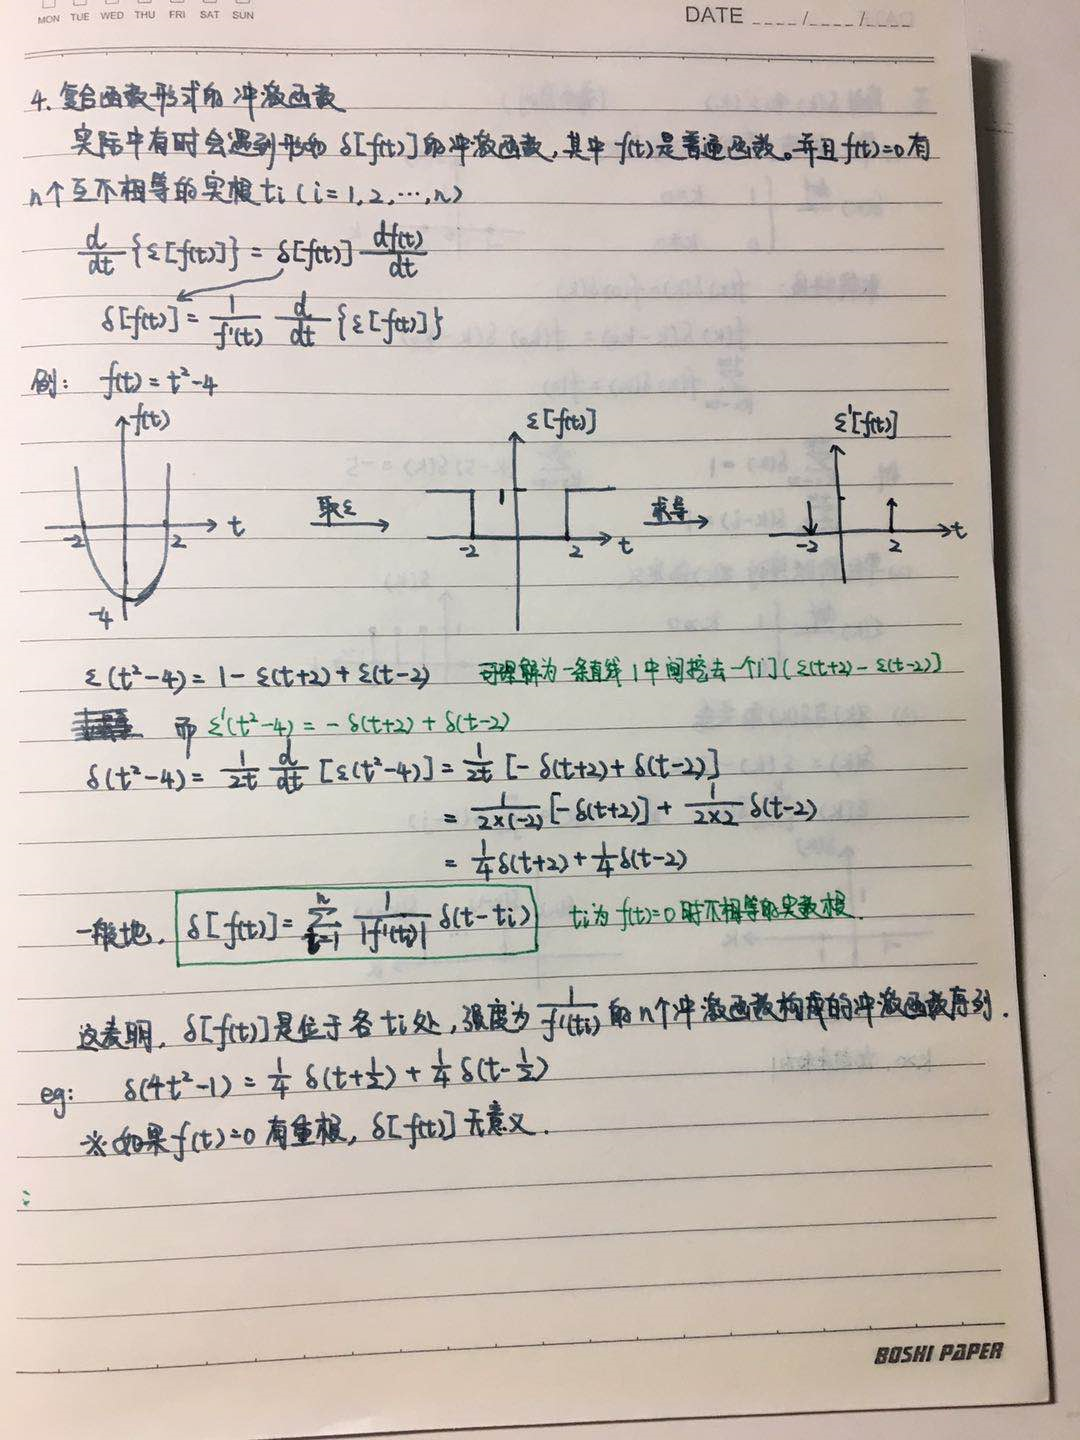 MON TUE WED THU FRI SAT SUN
DATE ____/____/____
4. 复合函数形式的冲激函数
实际中有时会遇到形如 δ[f(t)]的冲激函数,其中 f(t)是普通函数。并且f(t)=0有
n个互不相等的实根 ti (i=1,2,…,n)
d/dt {ε[f(t)]} = δ[f(t)] df(t)/dt
δ[f(t)] = 1/f'(t) d/dt {ε[f(t)]}
例: f(t)=t²-4
f(t) ε[f(t)] ε'[f(t)]
-2 2 t -4 取ε 1 -2 2 t 求导 -2 2 t
ε(t²-4)= 1-ε(t+2)+ε(t-2) 可理解为一条直线1中间挖去一个门[ε(t+2)-ε(t-2)]
而 ε'(t²-4)= -δ(t+2)+δ(t-2)
δ(t²-4)= 1/2t d/dt [ε(t²-4)] = 1/2t [-δ(t+2)+δ(t-2)]
= 1/2×(-2) [-δ(t+2)] + 1/2×2 δ(t-2)
= 1/4 δ(t+2)+ 1/4 δ(t-2)
一般地, δ[f(t)]= n∑i=1 1/|f'(ti)| δ(t-ti) ti为f(t)=0时不相等的实数根.
这表明, δ[f(t)]是位于各ti处,强度为 1/f'(ti) 的n个冲激函数构成的冲激函数序列.
eg: δ(4t²-1)= 1/4 δ(t+1/2)+ 1/4 δ(t-1/2)
※如果f(t)=0 有重根, δ[f(t)]无意义.
BOSHI PAPER